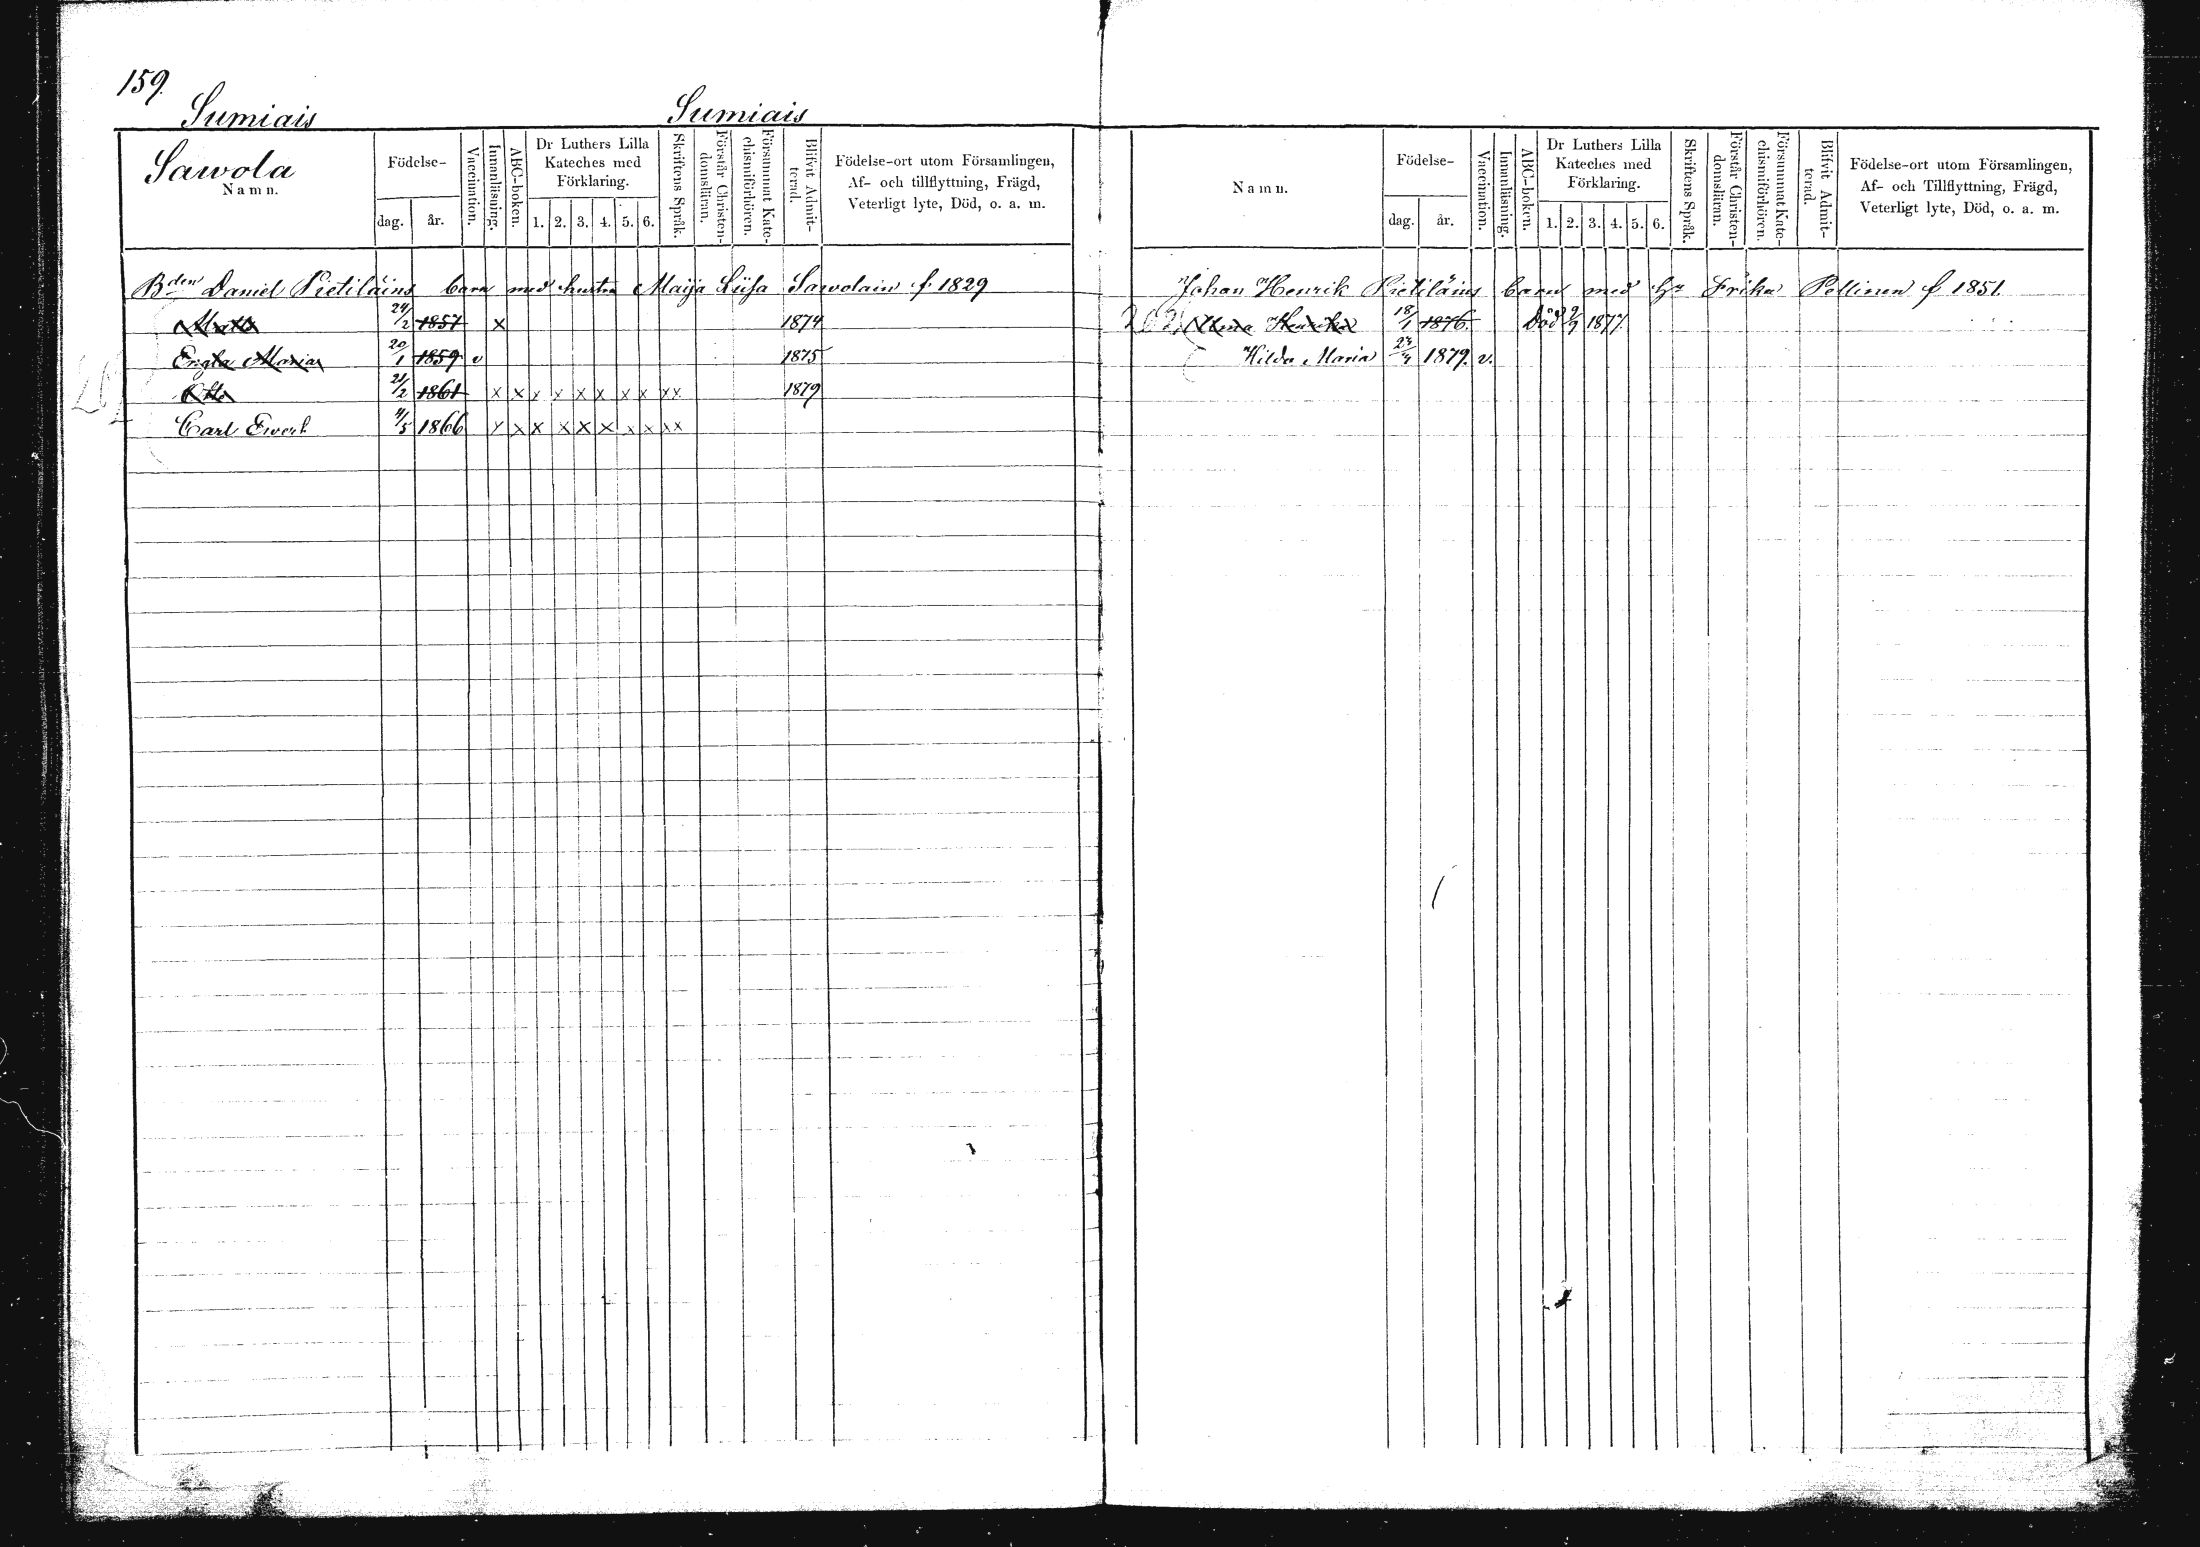 159.
Sumiais Sumiais
Sawola
Namn. Födelse- dag. år. Vaccination. Innanläsning. ABC-boken. Dr Luthers Lilla Kateches med Förklaring. 1. 2. 3. 4. 5. 6. Skriftens Språk. Förstår Christen-domsläran. Försummat Kate-chismiförhören. Blifvit Admit-terad. Födelse-ort utom Församlingen, Af- och tillflyttning, Frägd, Veterligt lyte, Död, o. a. m.
Bden Daniel Pietiläins barn med hustru Maija Lisa Sawolain f. 1829
24/2 1857 x 1874
Engla Maria 20/1 1859 v 1875
Otto 21/2 1861 x x x x x x x x xx 1879
Carl Evert 4/5 1866 x x x x x x x x xx
Namn. Födelse- dag. år. Vaccination. Innanläsning. ABC-boken. Dr Luthers Lilla Kateches med Förklaring. 1. 2. 3. 4. 5. 6. Skriftens Språk. Förstår Christen-domsläran. Försummat Kate-chismiförhören. Blifvit Admit-terad. Födelse-ort utom Församlingen, Af- och Tillflyttning, Frägd, Veterligt lyte, Död, o. a. m.
Johan Henrik Pietiläins barn med Hu Frika Pellinen f 1851
18/1 1876. Död 2/9 1877.
Hilda Maria 1879. v.